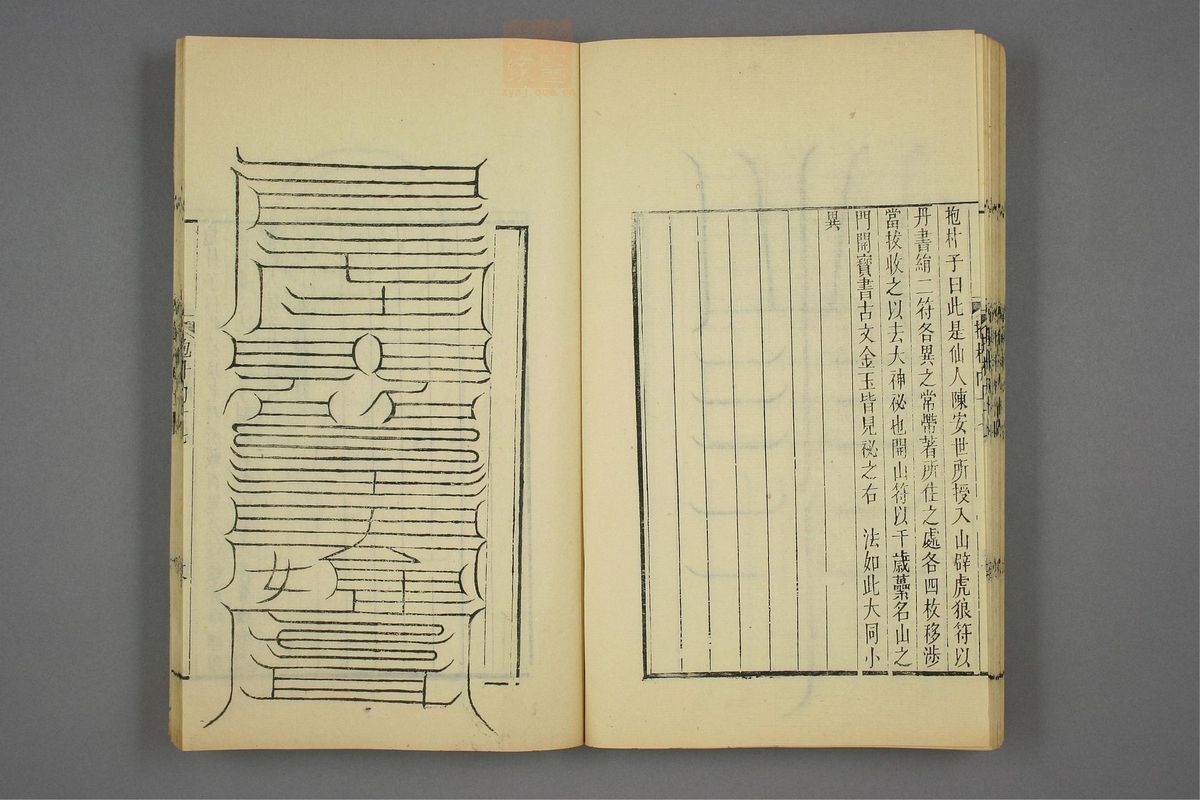 抱朴子曰此是仙人陳安世所授入山辟虎狼符以
丹書絹二符各異之常帶著所住之處各四枚移涉
當拔收之以去大神祕也開山符以千歲虆名山之
門開寶書古文金玉皆見祕之右 法如此大同小
異
女